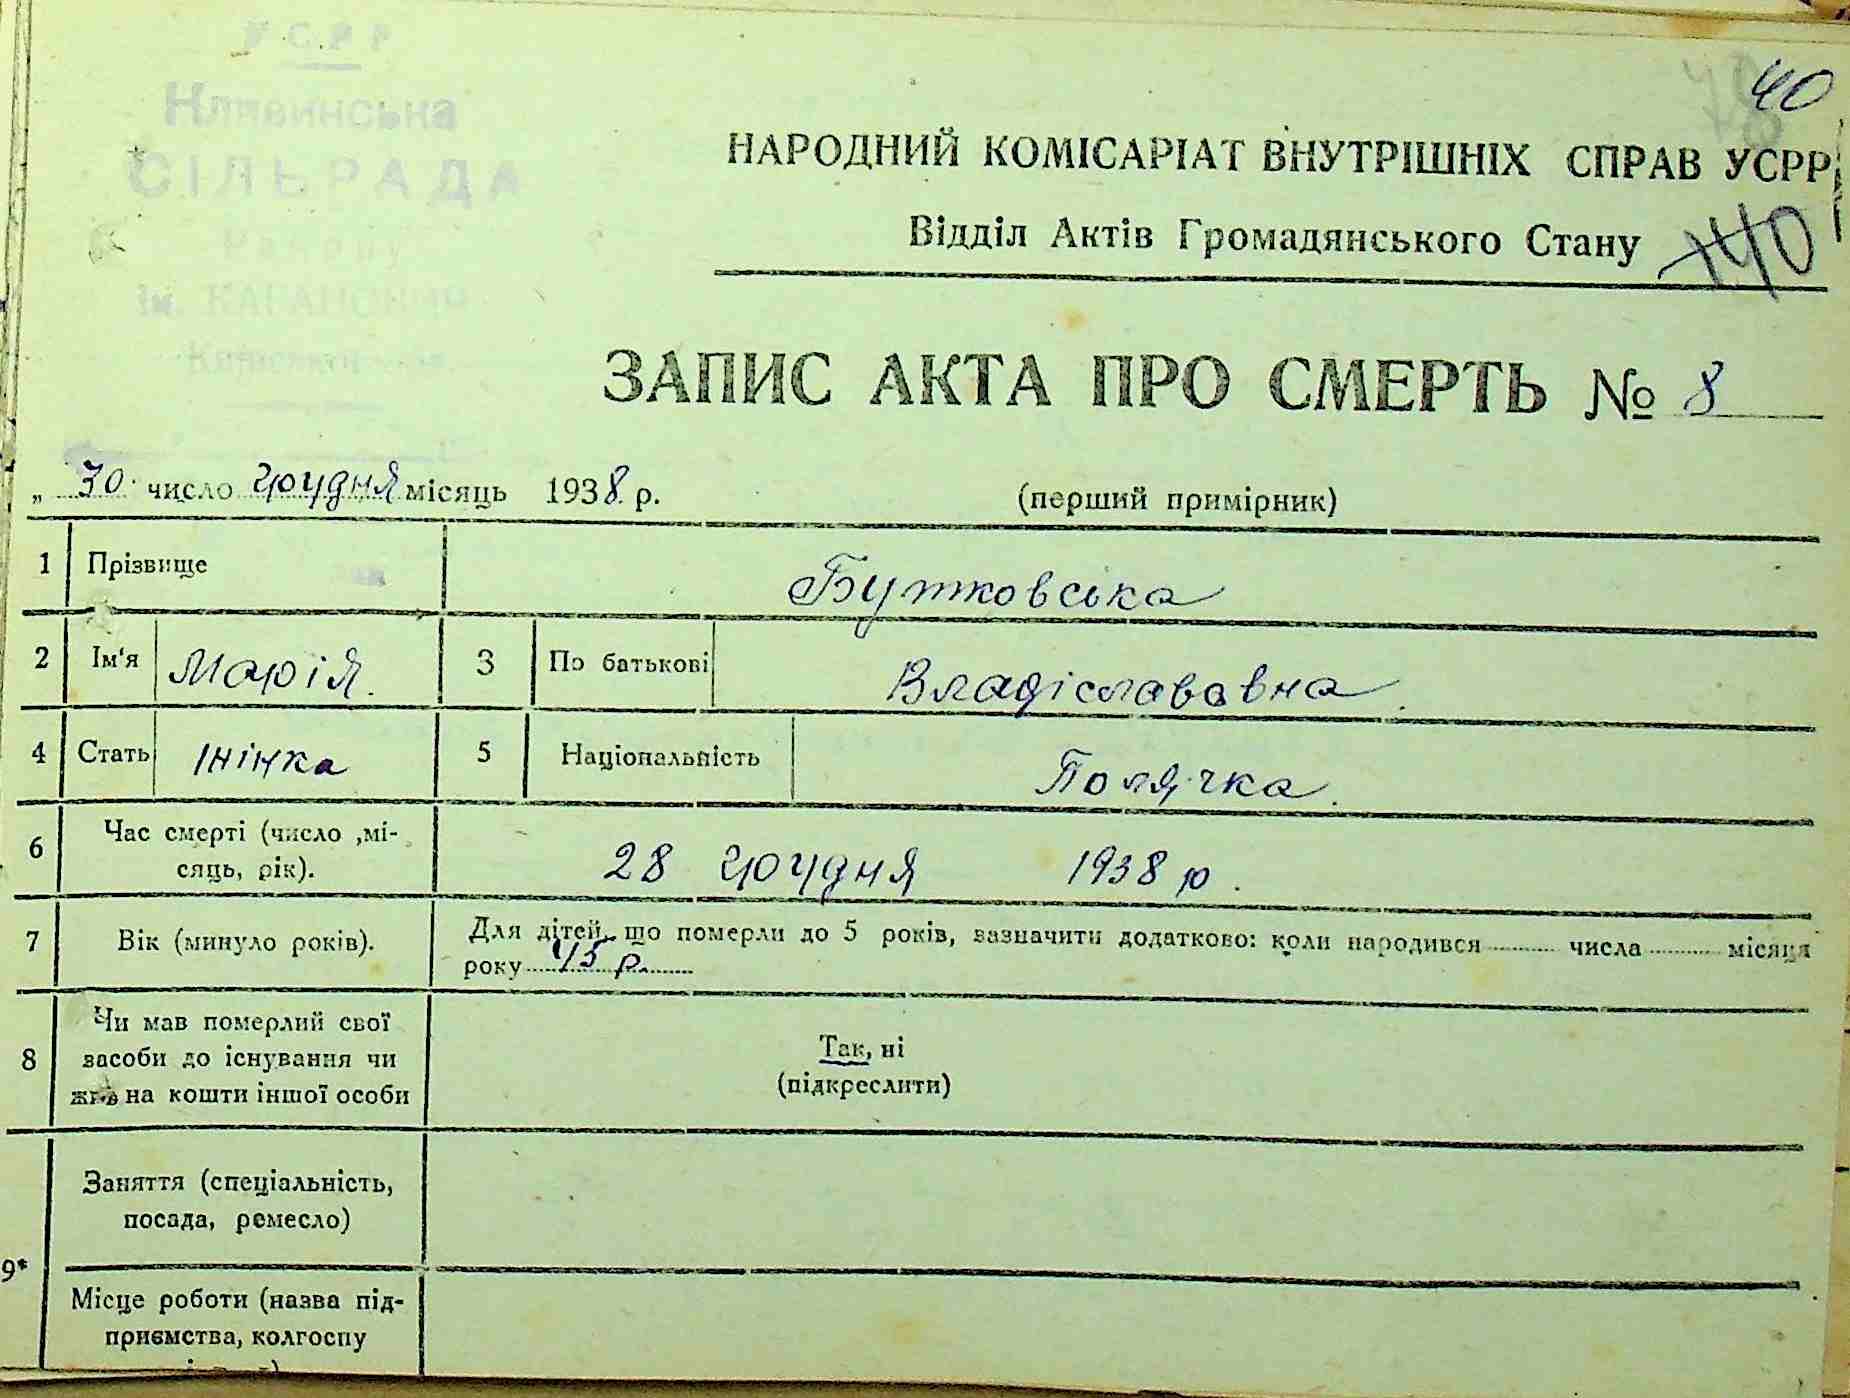 УСРР
СІЛЬРАДА
Району
40
НАРОДНИЙ КОМІСАРІАТ ВНУТРІШНІХ СПРАВ УСРР
Відділ Актів Громадянського Стану
140
ЗАПИС АКТА ПРО СМЕРТЬ № 8
„ 30. число грудня місяць 1938 р. (перший примірник)
1 Прізвище Бутковська
2 Ім'я Марія. 3 По батькові Владіславовна.
4 Стать жінка 5 Національність Полячка.
6 Час смерті (число ,мі-
сяць, рік). 28 грудня 1938 р.
7 Вік (минуло років). Для дітей, що померли до 5 років, зазначити додатково: коли народився числа місяця
року 45 р.
8 Чи мав померлий свої
засоби до існування чи
жив на кошти іншої особи
Так, ні
(підкреслити)
9* Заняття (спеціальність,
посада, ремесло)
Місце роботи (назва під-
приємства, колгоспу